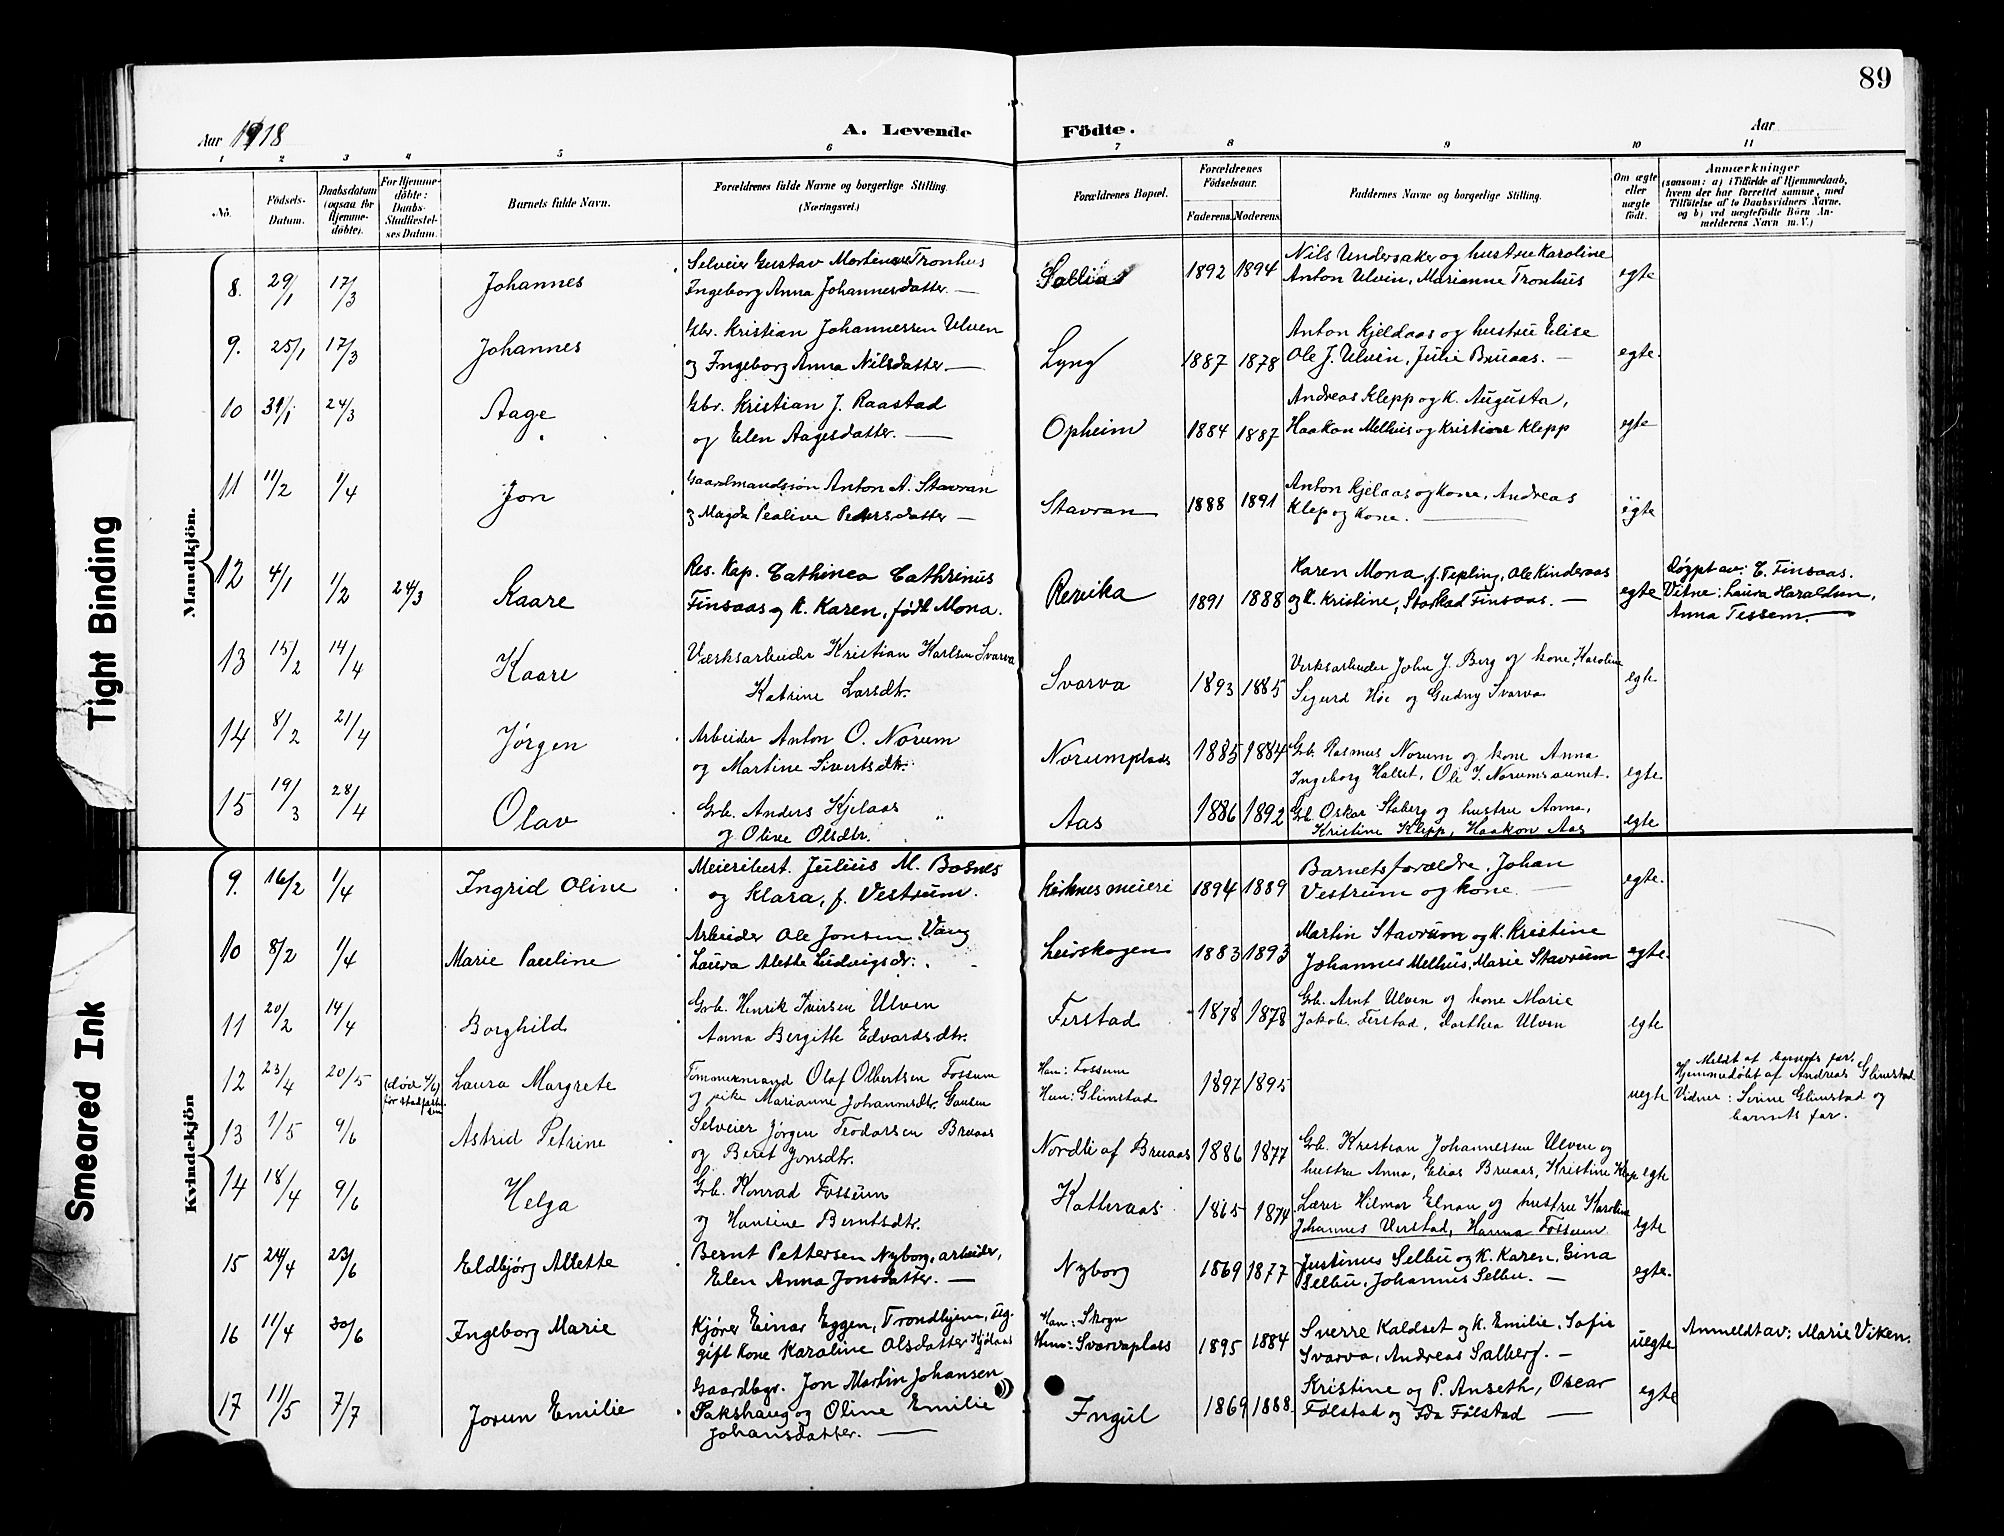 89
Aar 1918
A. Levende Födte.
Aar
1 2 3 4 5 6 7 8 9 10 11
No.
Födsels-Datum.
Daabsdatum (ogsaa for Hjemmedöbte).
For Hjemmedöbte: Daabs-Stadfæstelses Datum.
Barnets fulde Navn.
Forældrenes fulde Navne og borgerlige Stilling. (Næringsvei.)
Forældrenes Bopæl.
Forældrenes Födselsaar.
Faderens. Moderens.
Faddernes Navne og borgerlige Stilling.
Om ægte eller uægte födt.
Anmærkninger
(saasom: a) i Tilfælde af Hjemmedaab, hvem der har forrettet samme, med Tilföielse af to Daabsvidners Navne, og b) ved uægtefödte Börn Anmelderens Navn m. V.)
Mandkjön.
8. 29/1 17/3 Johannes
Selveier Gustav Tronhus
Ingeborg Anna Johannesdatter. —
1892 1894
Nils Undersaker og hustru Karoline
Anton Ulvin, Marianne Tronhus
egte
9. 25/1 17/3 Johannes
Gbr. Kristian Johannessen Ulven
og Ingeborg Anna Nilsdatter. —
Lyng 1887 1878
Anton Kjeldaas og hustru Elise
Ole J. Ulvin, Julie Bruaas. —
egte.
10 31/1 24/3 Aage
Gbr. Kristian J. Raastad
og Elen Aagesdatter. —
Opheim 1884 1887
Andreas Klepp og K. Augusta,
Haakon Melhus og Kristine Klepp
egte
11 11/2 1/4 Jon
Gaardmandssön Anton A. Stavran
og Magda Pealine Petersdatter —
Stavran 1888 1891
Anton Kjelaas og kone, Andreas
Klep og kone. —
egte
12 4/1 1/2 24/3 Kaare
Res. Kap. Cathinco Cathrinus
Finsaas og K. Karen, född Mona.
Revika 1891 1888
Karen Mona, f. Tepling, Ole Kinderaas
og K. Kristine, Starkad Finsaas. —
egte
Døpt av: C. Finsaas.
Vitne: Laura Haraldsen,
Anna Tessem.
13 15/2 14/4 Kaare
Værksarbeider Kristian Karlsen Svarva
Katrine Larsdtr.
Svarva 1893 1885
Verksarbeider John J. Berg og kone Karoline
Sigurd Høe og Gudny Svarva
egte
14 8/2 21/4 Jørgen
Arbeider Anton O. Norum
og Martine Sivertsdtr.
Norumplads 1885 1884
Grb. Rasmus Norum og kone Anna
Ingeborg Halset, Ole J. Norumsaunet.
egte
15 19/3 28/4 Olav
Grb. Anders Kjelaas "
og Oline Olsdtr.
Aas 1886 1892
Grb. Oskar Staberg og hustru Anna,
Kristine Klepp, Haakon Aas
egte
Kvindekjön
9. 16/2 1/4 Ingrid Oline
Meieribest. Julius M. Bosnes
og Klara, f. Vestrum.
Kirknes meieri 1894 1889
Barnets forældre, Johan
Vestrum og kone. —
egte.
10 8/2 1/4 Marie Pauline
Arbeider Ole Jonsen Vang
Laura Alette Ludvigsdr.
Leirskogen 1883 1893
Martin Stavrum og K. Kristine
Johannes Melhus, Marie Stavrum
egte.
11 20/2 14/4 Borghild
Grb. Henrik Iversen Ulven
Anna Bergitte Edvardsdtr.
Ferstad 1878 1878
Grb. Arnt Ulven og kone Marie
Jakob Ferstad, Dorthea Ulven
egte
12 23/4 20/5 Laura Margrete
Tømmermand Olaf Olbertsen Fossum
og pike Marianne Johannesdtr.
Han: Fossum
Hun: Glimstad
1897 1895
uegte
Meldt af barnets far.
Hjemmedøbt af Andreas Glimstad
Vidner: Serine Glimstad og
barnets far.
13 1/5 9/6 Astrid Petrine
Selveier Jørgen Teodorsen Bruaas
og Beret Jonsdtr.
Nordli af Bruaas 1886 1877
Grb. Kristian Johannessen Ulven og
hustru Anna, Elias Bruaas, Kristine Klep
egte
14 18/4 9/6 Helga
Grb. Konrad Fossum
og Hansine Berntsdtr.
Katteraas 1865 1874
Lærer Hilmar Elnan og hustru Karoline
Johannes Verstad, Hanna Fossum
egte
15 24/4 23/6 Eldbjørg Alette
Bernt Pettersen Nyborg, arbeider,
Elen Anna Jonsdatter. —
Nyborg 1869 1877
Justinus Selbu og K. Karen, Gina
Selbu, Johannes Selbu. —
egte.
16 11/4 30/6 Ingeborg Marie
Kjører Einar Eggen, Trondhjem, ug.
gift kone Karoline Olsdatter Kjölaas
Han: Skogn
Hun: Svarvaplass
1895 1884
Sverre Kaldset og K. Emilie, Sofie
Svarva, Andreas Salberg. —
uegte
Anmeldt av: Marie Viken.
17 11/5 7/7 Jorun Emilie
Gaardbgr. Jon Martin Johansen
Sakshaug og Oline Emilie
Johansdatter. —
Ingul 1869 1888.
Kristine og P. Anseth, Oscar
Følstad og Ida Følstad —
egte
Tight Binding
Smeared Ink